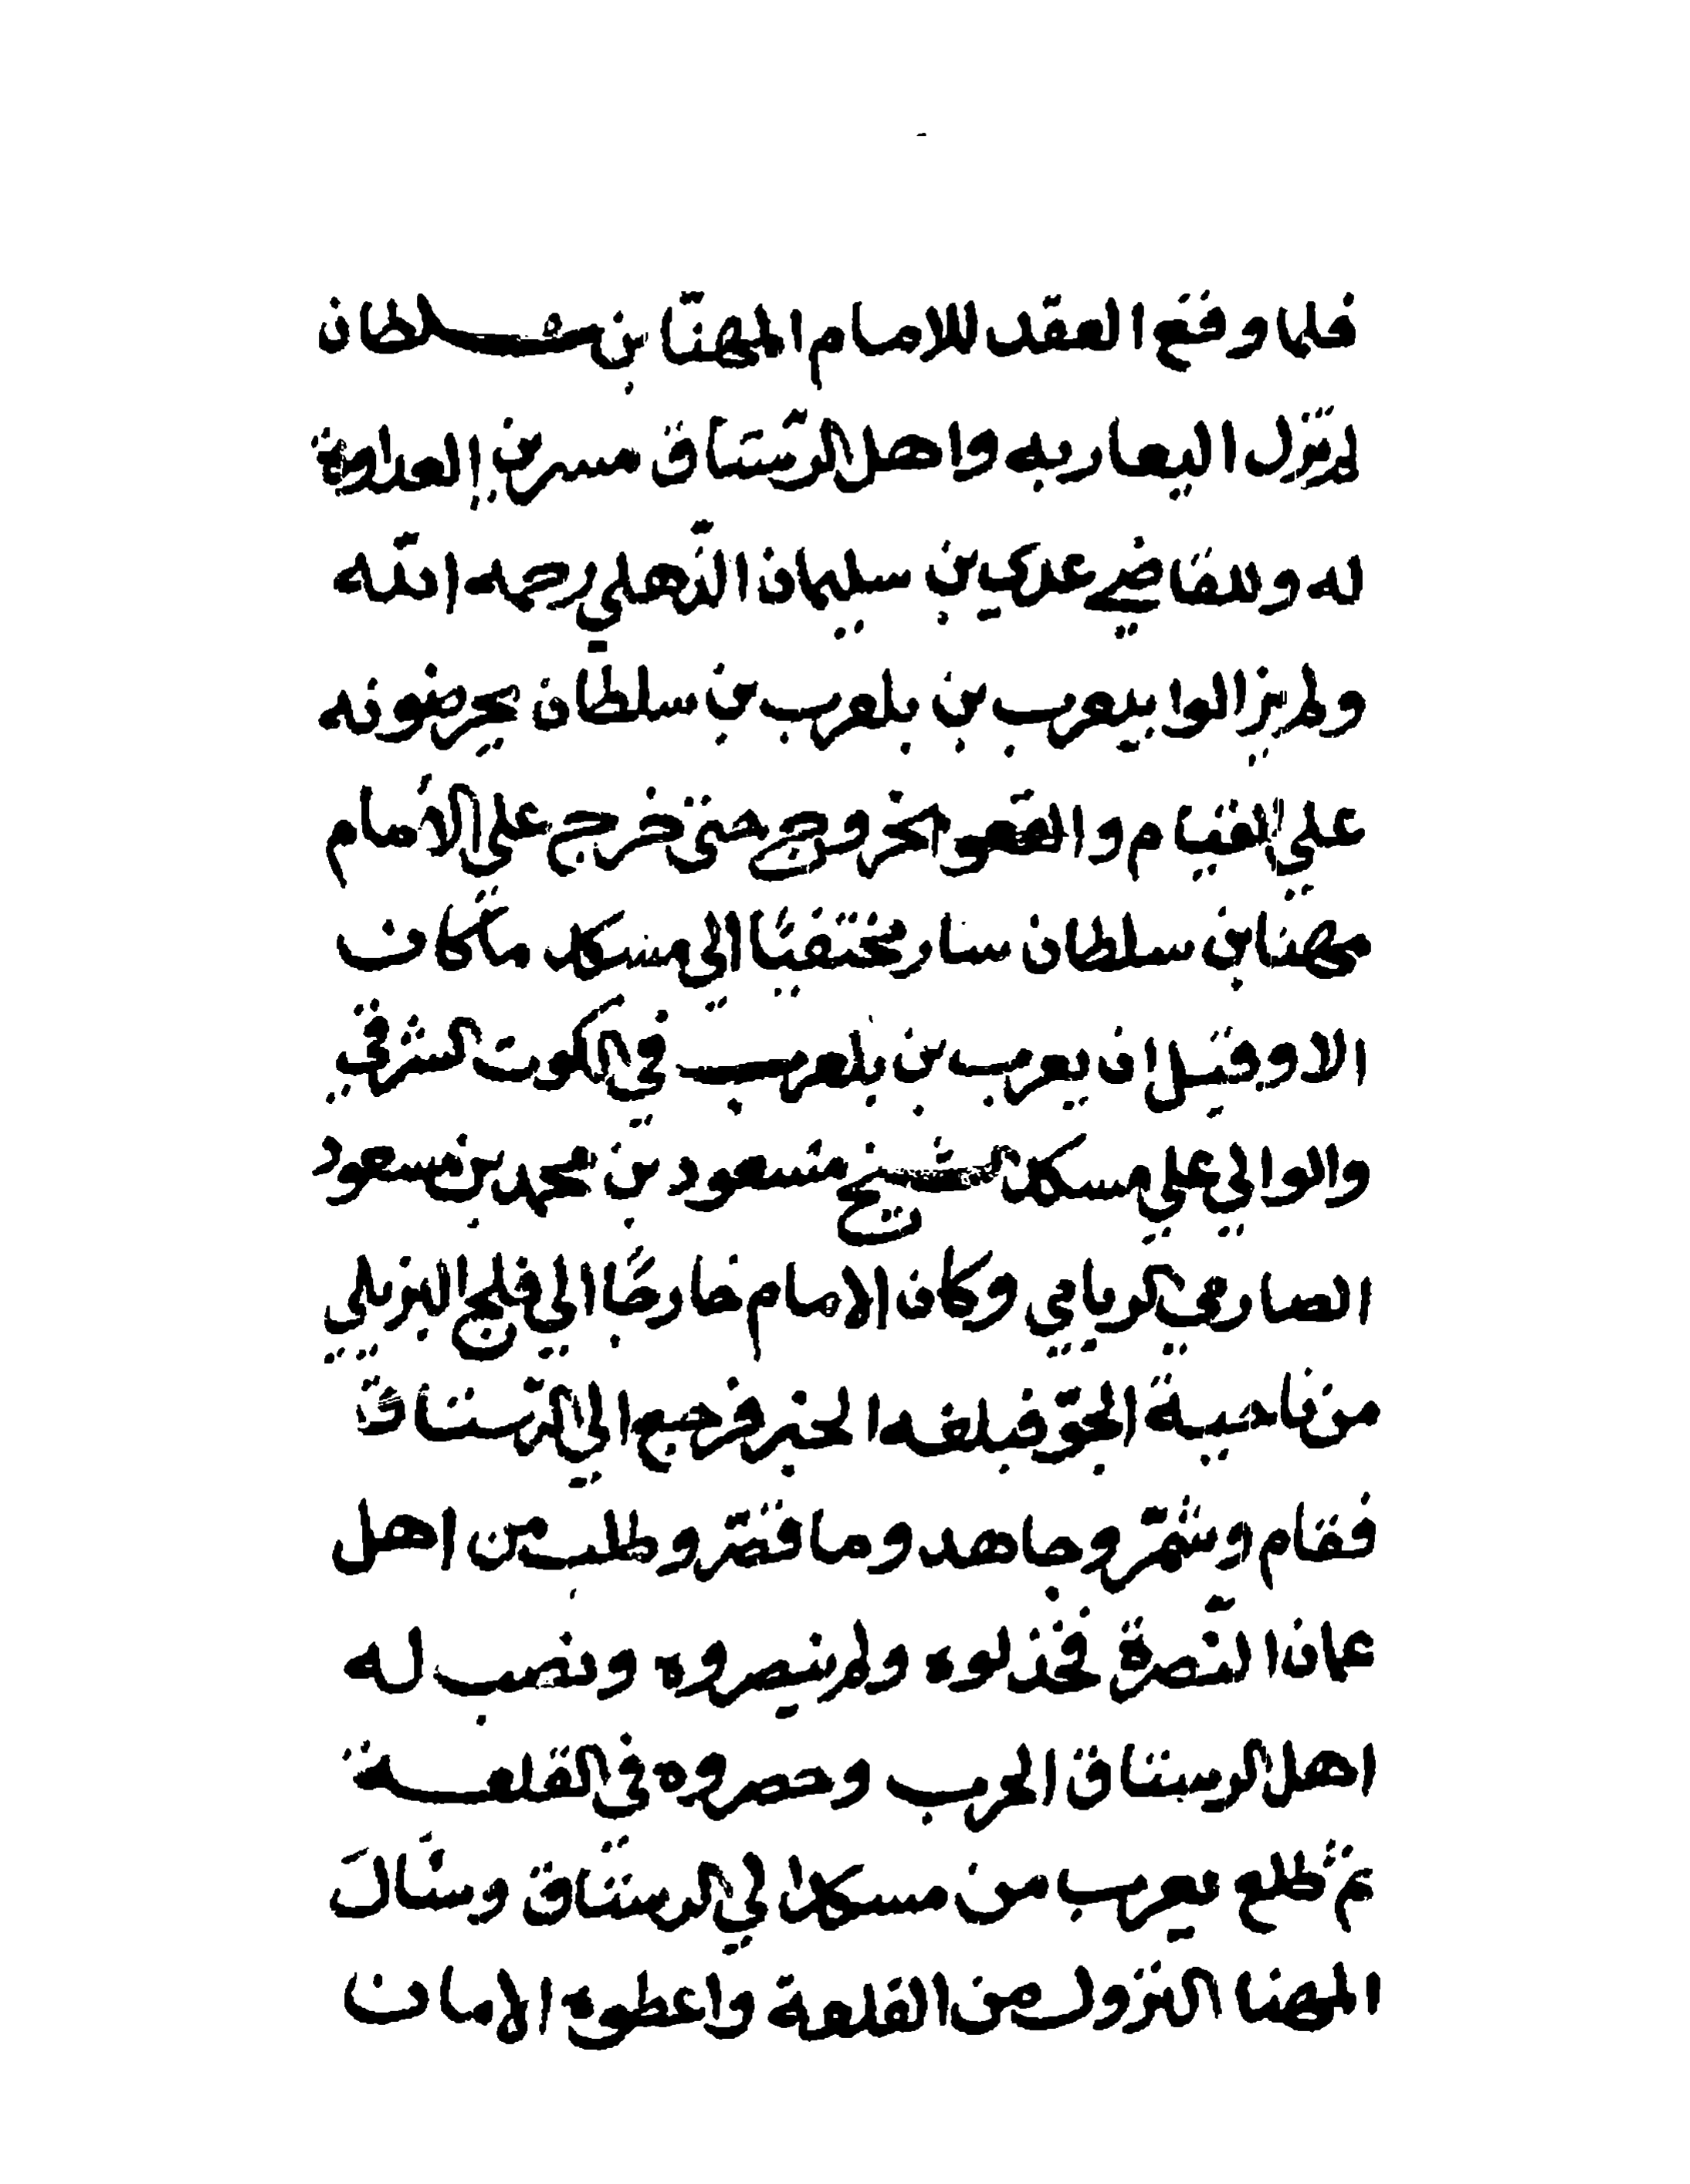 فلما وقع العقد للامام المهنّا بن سلطان
لم تزل اليعاربه واهل الرّستاق مسرين العداوة
له وللقاضي عدي بن سليمان الذّهلي رحمه الله
ولم يزالوا بيعرب بن بلعرب بن سلطان يحرضونه
علي القيام والخروج حتى خرج على الامام
مهنا بن سلطان سار مختفيًا الي مسكد ماكان
الا وقيل ان يعرب بن بلعرب في الكوت الشرقي
والوالي علي مسكد الشيخ مسعود بن محمد بن مسعود
الصارمي الريامي وكان الامام خارجًا الي فلج البزيلي
من ناحية الجوّ فبلغه الخبر فرجع الي الرّستاق
فقام وشمّر وجاهد وما قصّر وطلب من اهل
عمان النّصرة فخذلوه ولم ينصروه ونصب له
اهل الرستاق الحرب وحصروه في القلعة
ثم طلع يعرب من مسكد الي الرستاق وسَالَ
المهنا النزول من القلعة واعطوه الامان